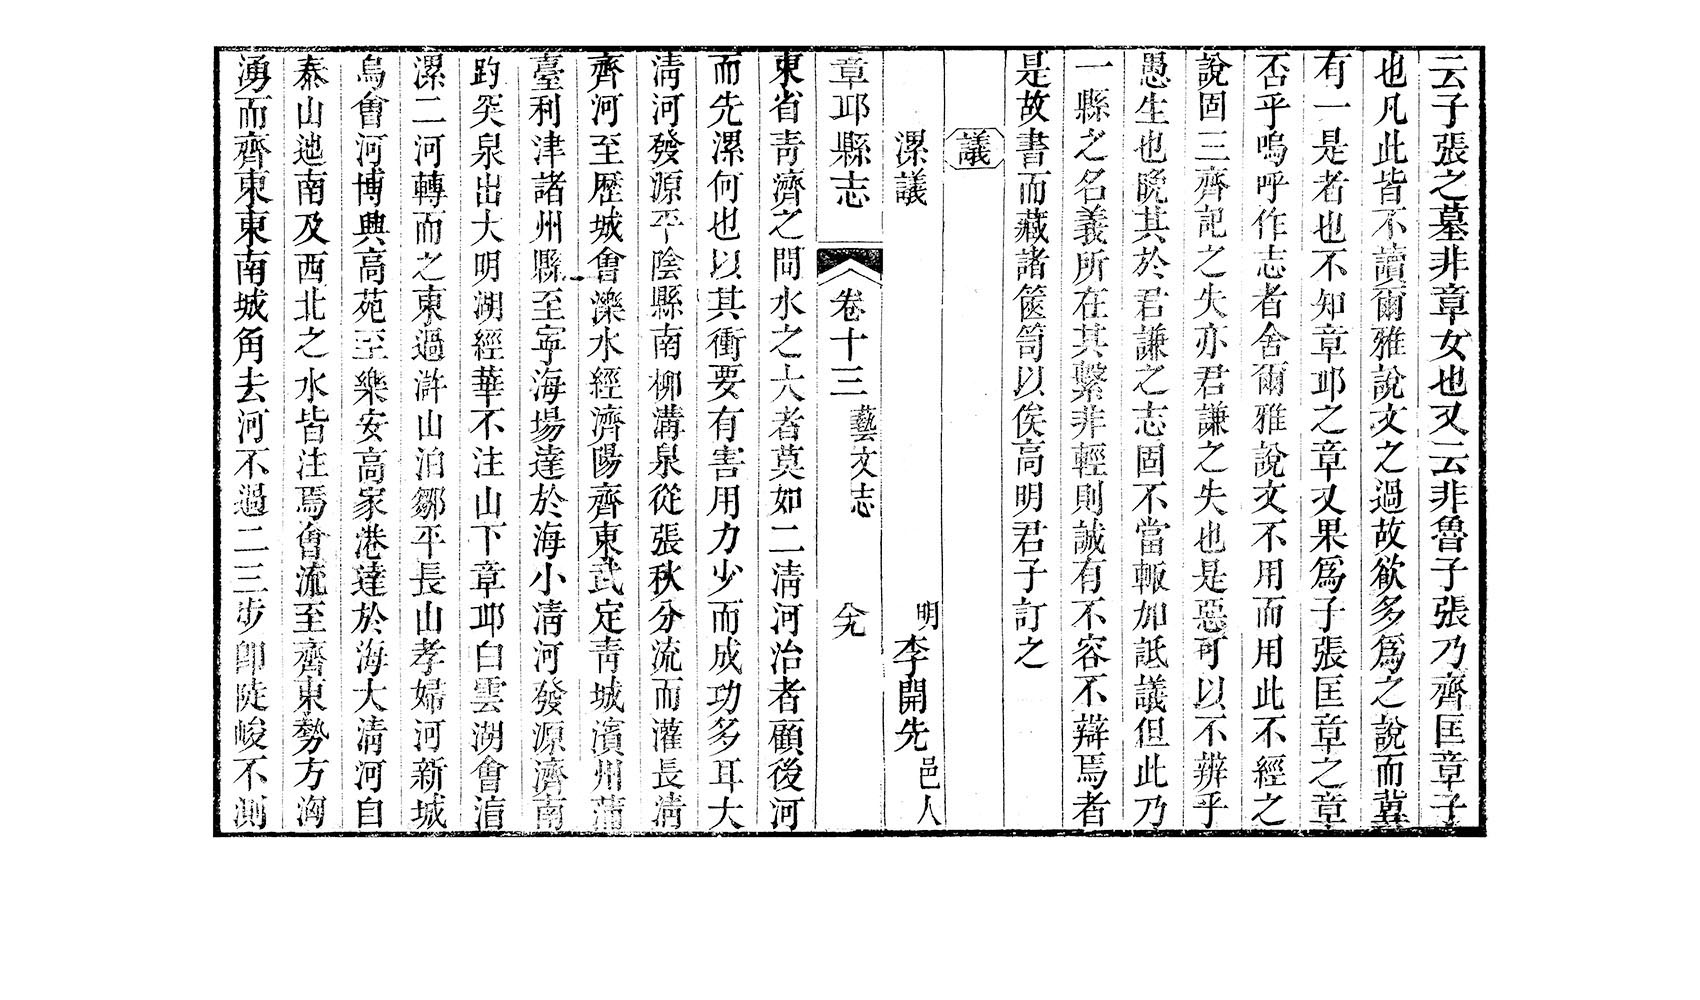 云子張之墓非章女也又云非魯子張乃齊匡章子
也凡此皆不讀爾雅說文之過故欲多爲之說而冀
有一是者也不知章邱之章又果爲子張匡章之章
否乎嗚呼作志者舍爾雅說文不用而用此不經之
說固三齊記之失亦君謙之失也是惡可以不辨乎
愚生也晩其於君謙之志固不當輒加詆議但此乃
一縣之名義所在其繫非輕則誠有不容不辯焉者
是故書而藏諸篋笥以俟高明君子訂之
議
漯議
明李開先邑人
章邱縣志
卷十三
藝文志
八九
東省靑濟之間水之大者莫如二淸河治者顧後河
而先漯何也以其衝要有害用力少而成功多耳大
淸河發源平陰縣南柳溝泉從張秋分流而灌長淸
齊河至歷城會濼水經濟陽齊東武定靑城濱州蒲
臺利津諸州縣至寧海場達於海小淸河發源濟南
趵突泉出大明湖經華不注山下章邱白雲湖會淯
漯二河轉而之東過滸山泊鄒平長山孝婦河新城
烏會河博興高苑至樂安高家港達於海大淸河自
泰山迆南及西北之水皆注焉會流至齊東勢方洶
湧而齊東東南城角去河不過二三步卽陡峻不測